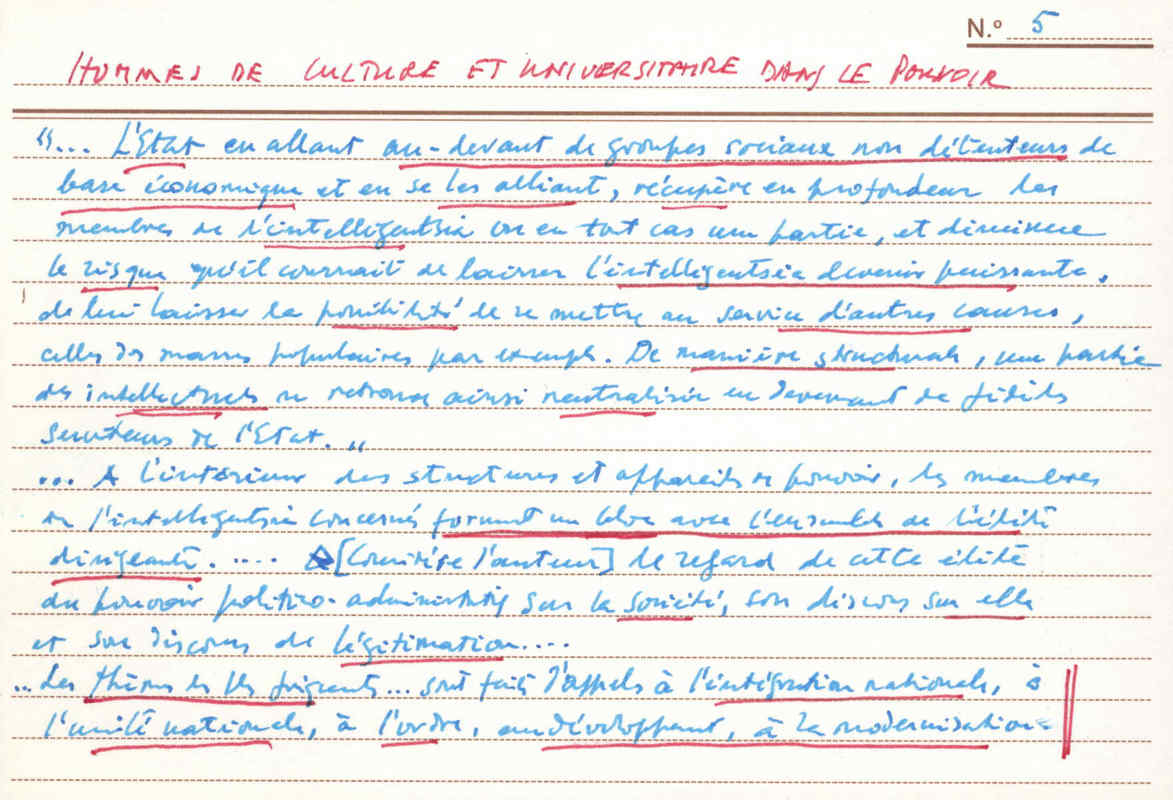 N.º 5
HOMMES DE CULTURE ET UNIVERSITAIRE DANS LE POUVOIR
"... L'Etat en allant au-devant de groupes sociaux non détenteurs de
base économique et en se les alliant, récupère en profondeur les
membres de l'intelligentsia ou en tout cas une partie, et diminue
le risque qu'il courrait de laisser l'intelligentsia devenir puissante,
de lui laisser la possibilité de se mettre au service d'autres causes,
celles des masses populaires par exemple. De manière structurale, une partie
des intellectuels se retrouve ainsi neutralisée en devenant de fidèles
serviteurs de l'Etat. "
... A l'intérieur des structures et appareils de pouvoir, les membres
de l'intelligentsia concernés forment un bloc avec l'ensemble de l'élite
dirigeante. .... [ l'auteur] le regard de cette élite
du pouvoir politico-administratif sur la société, son discours sur elle
et son discours de légitimation....
.. Les thèmes les plus fréquents... sont faits d'appels à l'intégration nationale, à
l'unité nationale, à l'ordre, au développement, à la modernisation.